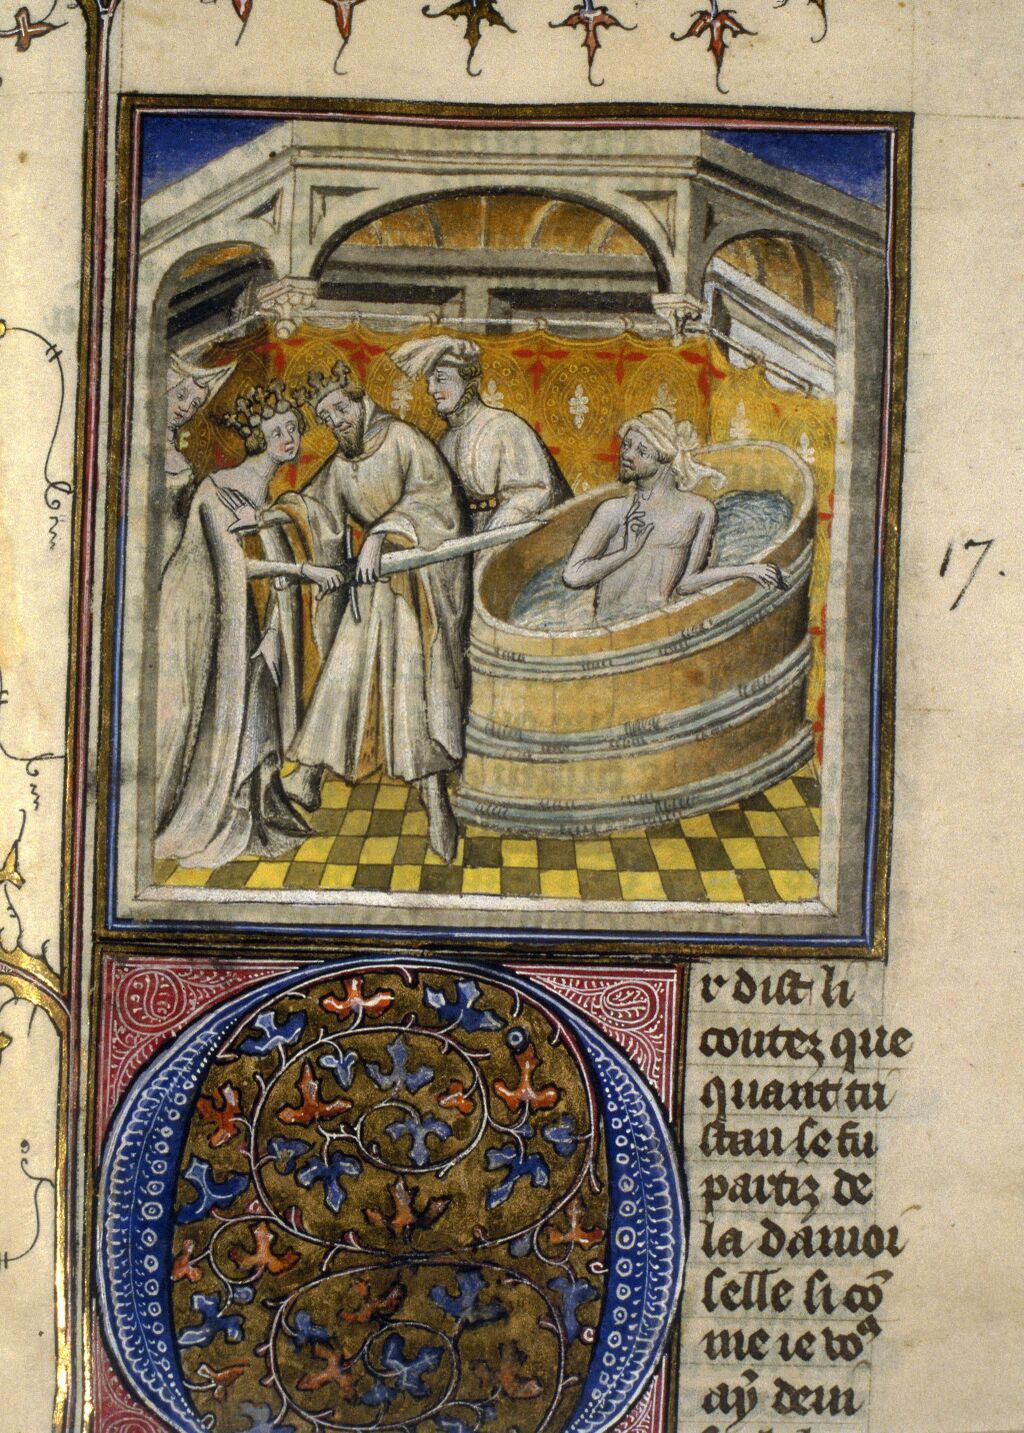 17.
Or dist li
contez que
quant tri
stan se fu
partiz de
la damoi
selle si cō
me ie voꝰ
ay deui